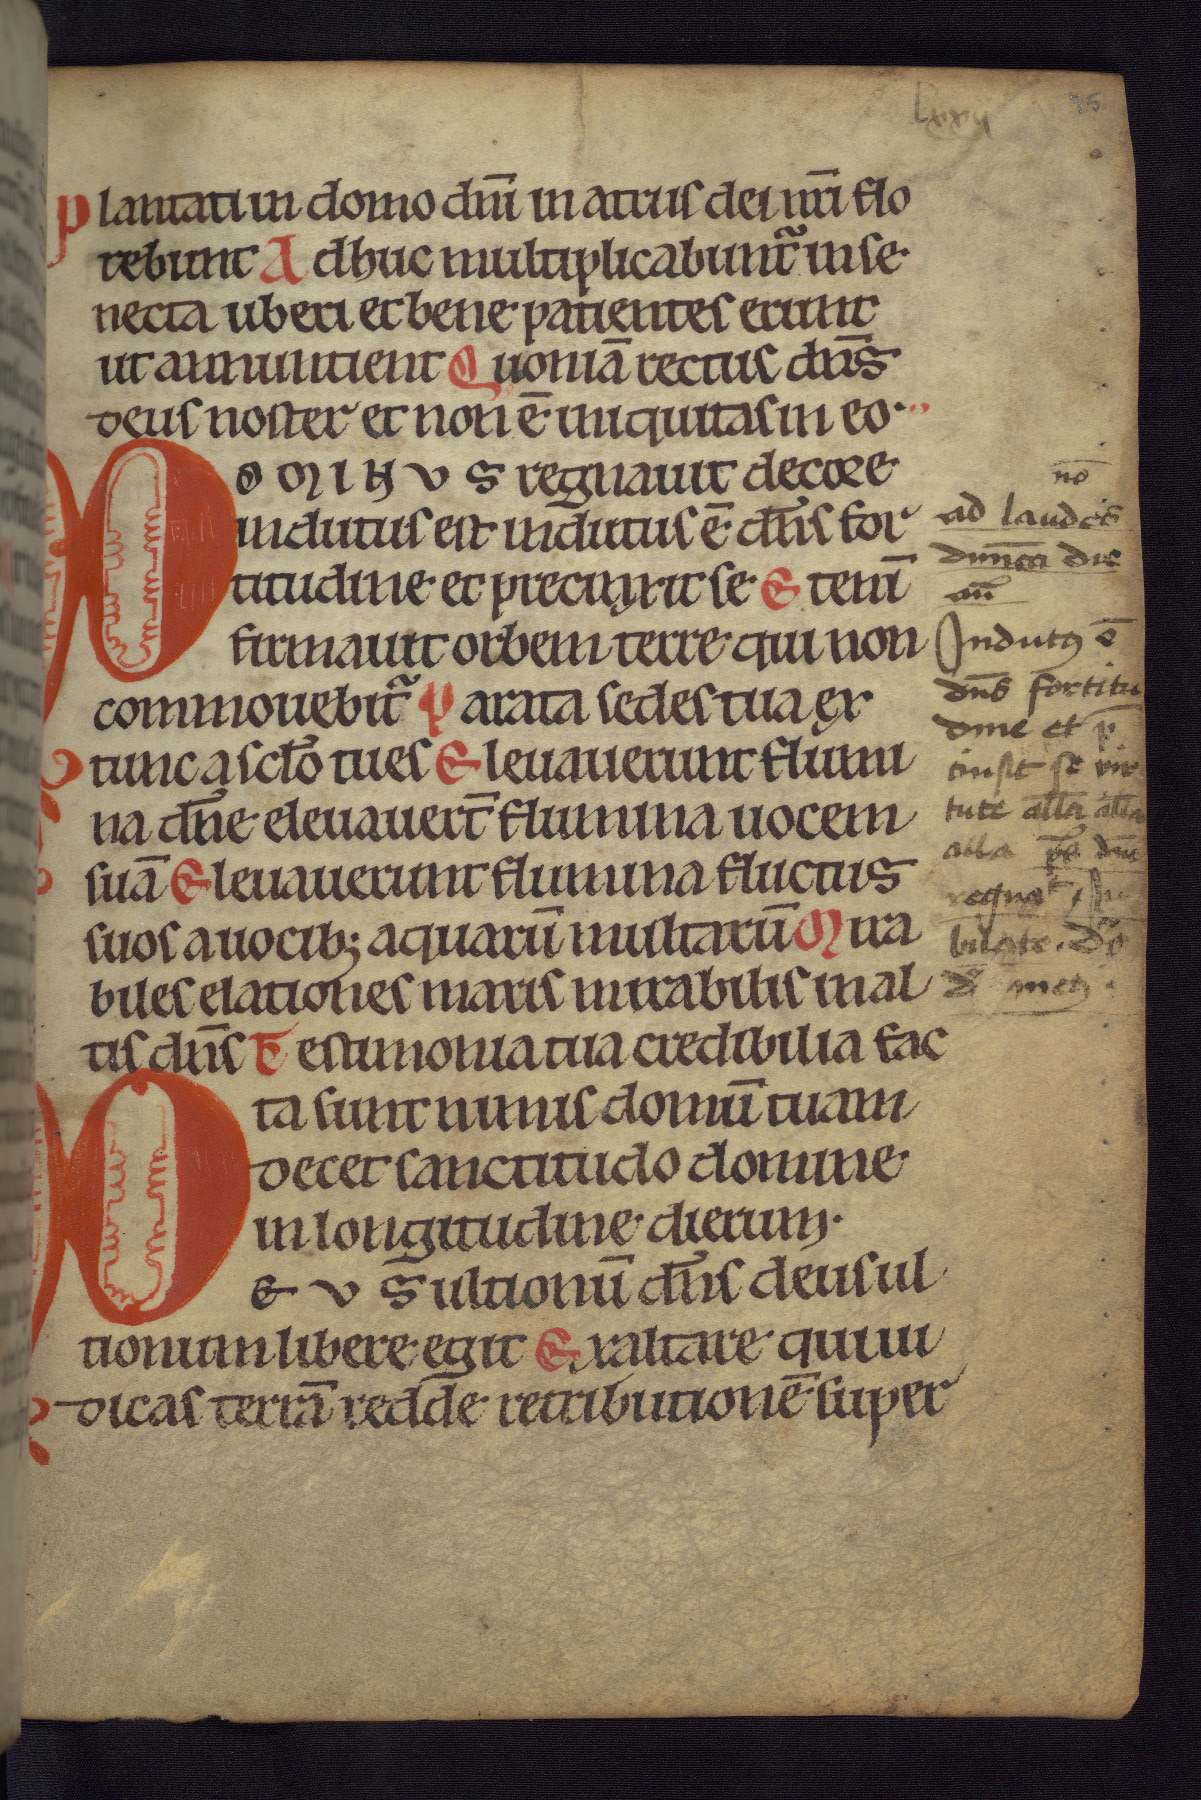 Lxxxv
75
Plantati in domo dn̄i in atriis dei nr̄i flo
rebunt Adhuc multiplicabunt᷑ in se
necta uberi et bene patientes erunt
ut annuntient Quoniā rectus dn̄s
deus noster et non ē iniquitas in eo·
DOMINUS regnauit decore
indutus est indutus ē dn̄s for
titudine et precinxit se Etenī
firmauit orbem terre qui non
commouebit᷑ Parata sedes tua ex
tunc a sclō tu es Eleuauerunt flumi
na dn̄e eleuauert̄ flumina uocem
suā Eleuauerunt flumina fluctus
suos a uocib; aquarū multarū Mira
biles elationes maris mirabilis in al
tis dn̄s Testimonia tua credibilia fac
ta sunt nimis domū tuam
decet sanctitudo domine
in longitudine dierum·
DEUS ultionū dn̄s deus ul
tionum libere egit Exaltare qui iu
dicas terrā redde retributionē super
ad laudes
an̄
Indutꝯ ē
dn̄s fortitu
dine et p̄
cinsit se vir
tute all̄a all̄a
all̄a ps̄ dn̄s
regnat Ju
bilate dō